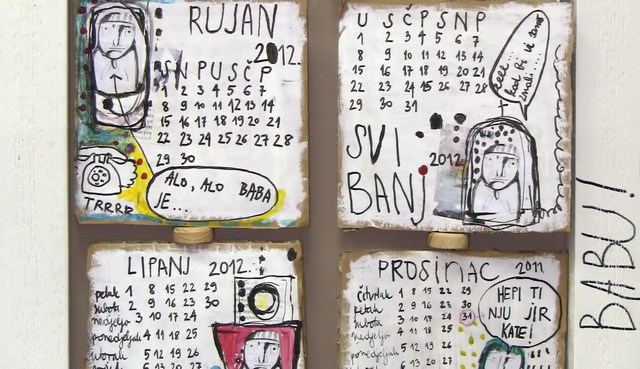 RUJAN
2012.
S N P U S Č P
1 2 3 4 5 6 7
8 9 10 11 12 13 14
15 16 17 18 19 20 21
22 23 24 25 26 27 28
29 30
TRRRR
ALO, ALO BABA
JE...
U S Č P S N P
1 2 3 4 5 6 7
8 9 10 11 12 13 14
15 16 17 18 19 20 21
22 23 24 25 26 27 28
29 30 31
kad bi
znali...
SVI
2012.
BANJ
LIPANJ 2012.
petak 1 8 15 22 29
subota 2 9 16 23 30
nedjelja 3 10 17 24
ponedjeljak 4 11 18 25
utorak 5 12 19 26
6 13 20 27
PROSINAC 2011
četvrtak 1 8 15 22 29
petak 2 9 16 23 30
subota 3 10 17 24 31
nedjelja 4 11 18 25
ponedjeljak 5 12 19 26
6 13 20 27
HEPI TI
NJU JIR
KATE!
BABU!